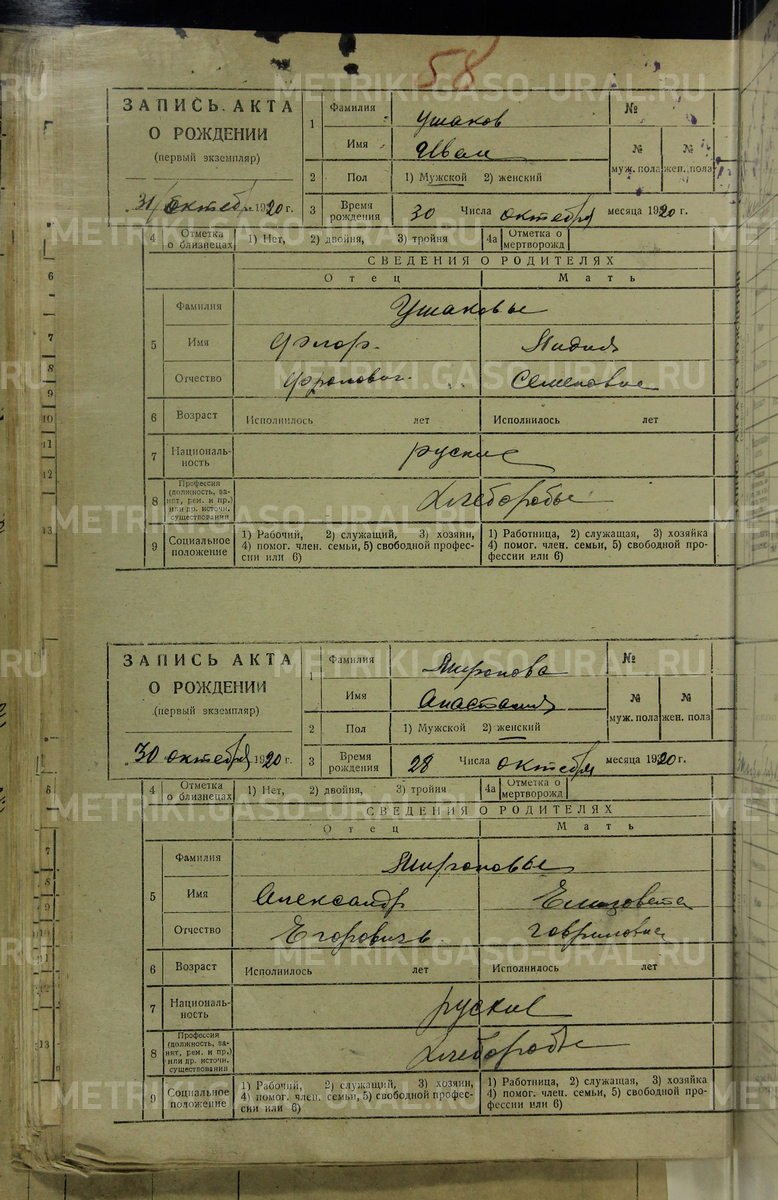 58
METRIKI.GASO-URAL.RU
ЗАПИСЬ АКТА
О РОЖДЕНИИ
(первый экземпляр)
31 октябр 1920 г.
1 Фамилия Ушаков №
Имя Иван № муж. пола № жен. пола
2 Пол 1) Мужской 2) женский
3 Время рождения 30 Числа октября месяца 1920 г.
4 Отметка о близнецах 1) Нет, 2) двойня, 3) тройня 4а Отметка о мертворожд
СВЕДЕНИЯ О РОДИТЕЛЯХ
Отец Мать
5 Фамилия Ушаковы
Имя Флор. Лидия
Отчество Фролович Семеновна
6 Возраст Исполнилось лет Исполнилось лет
7 Националь-
ность руские
8 Профессия
(должность, за-
нят, рем. и пр.)
или др. источн.
существования Хлеборобы
9 Социальное
положение 1) Рабочий, 2) служащий, 3) хозяин, 1) Работница, 2) служащая, 3) хозяйка
4) помог. член. семьи, 5) свободной профес- 4) помог. член. семьи, 5) свободной про-
сии или 6) фессии или 6)
ЗАПИСЬ АКТА
О РОЖДЕНИИ
(первый экземпляр)
30 октября 1920 г.
1 Фамилия Миронова №
Имя Анастасия № муж. пола № жен. пола
2 Пол 1) Мужской 2) женский
3 Время рождения 28 Числа октября месяца 1920 г.
4 Отметка о близнецах 1) Нет, 2) двойня, 3) тройня 4а Отметка о мертворожд
СВЕДЕНИЯ О РОДИТЕЛЯХ
Отец Мать
5 Фамилия Мироновы
Имя Александр Елизовета
Отчество Егоровичь Гавриловна
6 Возраст Исполнилось лет Исполнилось лет
7 Националь-
ность руские
8 Профессия
(должность, за-
нят, рем. и пр.)
или др. источн.
существования Хлеборобы
9 Социальное
положение 1) Рабочий, 2) служащий, 3) хозяин, 1) Работница, 2) служащая, 3) хозяйка
4) помог. член. семьи, 5) свободной профес- 4) помог. член. семьи, 5) свободной про-
сии или 6) фессии или 6)